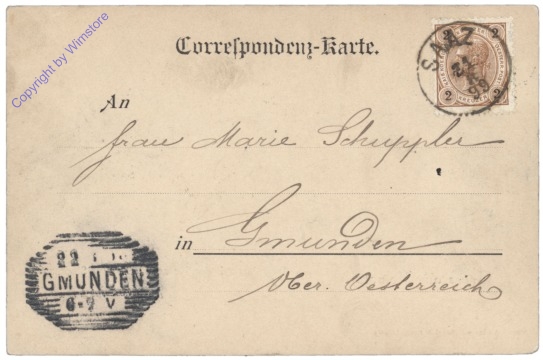 Copyright by Wimstore
Correspondenz-Karte.
SAAZ
2 2
2 2
An
Frau Marie Schuppler
in Gmunden
Ober. Oesterreich
22
GMUNDEN
6-9 V